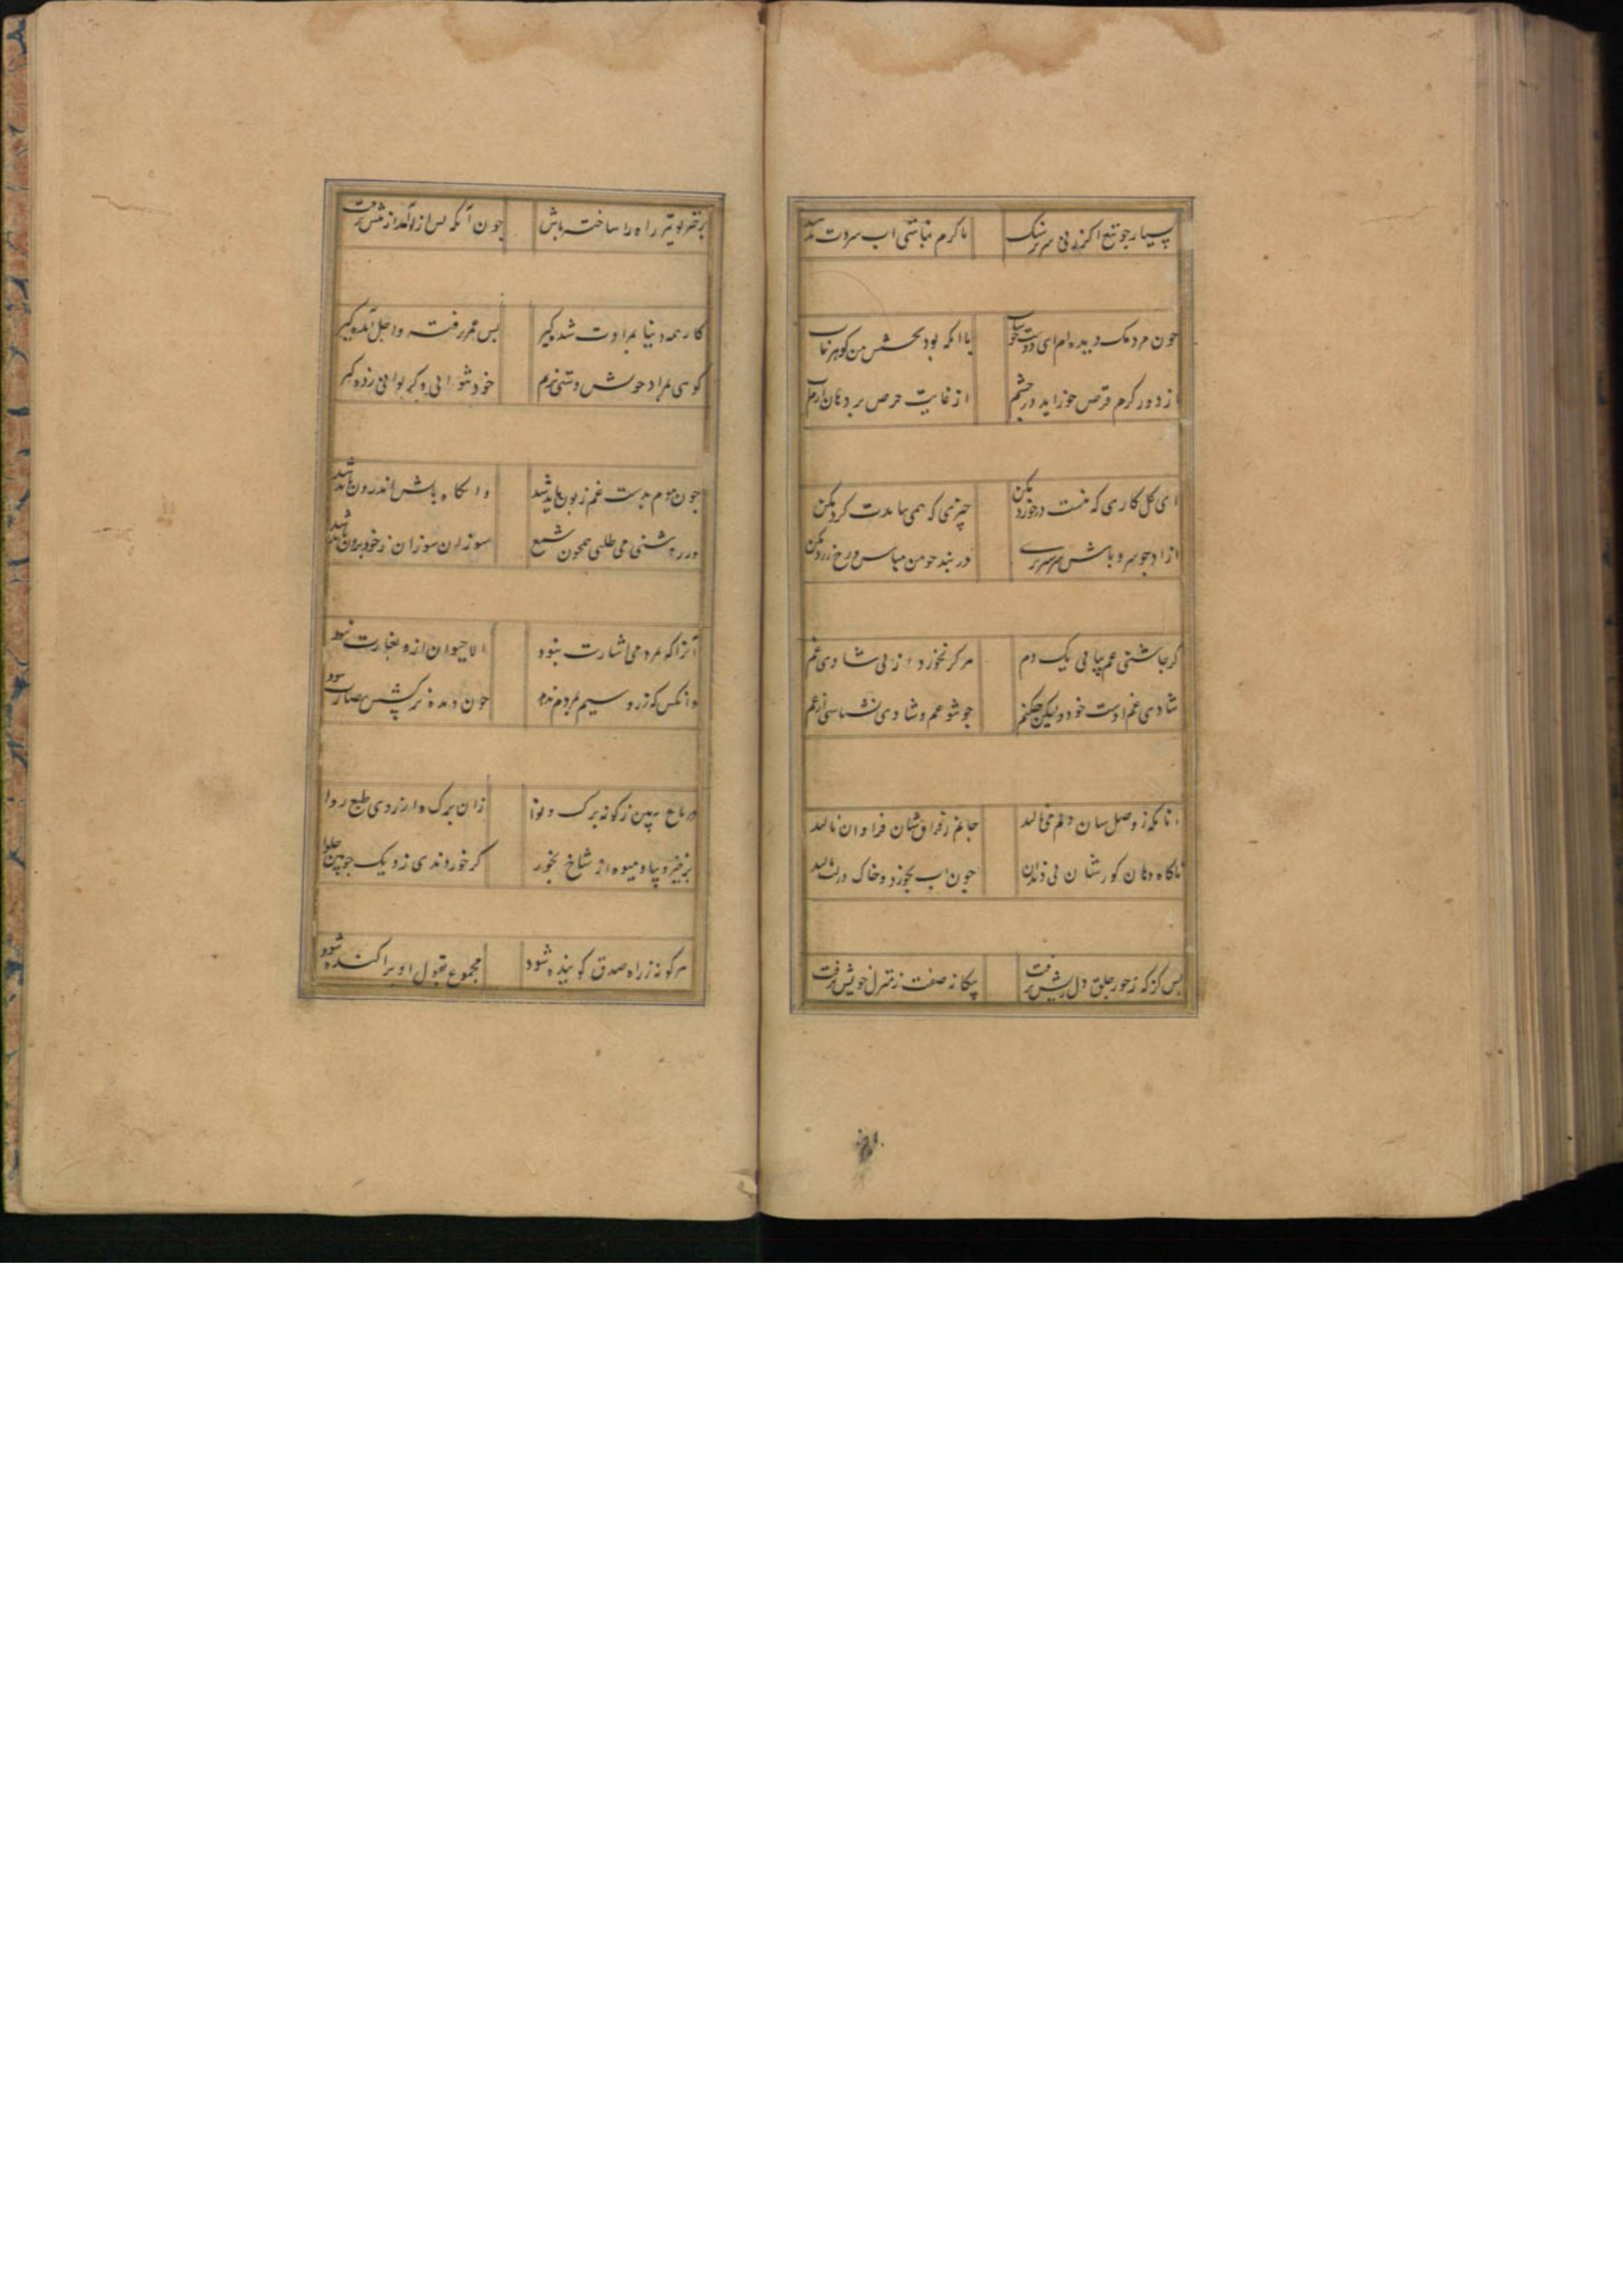 بسیار چو تیغ اگر زنی سر بر سنگ تا گرم نباشی آب سردت ندهند
چون مردمک دیده ام ای دوست خوشاب با آنکه بود بخشش من گوهر ناب
از دور کرم قرص خور آید در چشم از غایت حرص بر دهان آرم آب
ای گل کاری که نیست درخورد مکن چیزی که همی نبایدت کرد مکن
آزاد چو سرو باش سرسبز در بند چو من مباش و رخ زرد مکن
گر چاشنی غم بیابی یک دم هرگز نخورد از پی شادی غم
شادی غم اوست خود ولیکن چکنم چو تو غم و شادی نشناسی از هم
آنانکه ز وصلشان دلم می نالید جانم ز فراقشان فراوان نالید
ناگاه دهان گورشان بی دندان چون آب بخورد و خاک در لب مالید
بس کز که ز جور خلق دل ریش برفت بیگانه صفت ز منزل خویش برفت
برخیز تو نیز راه را ساخته باش چون آنکه پس از تو آمد از پیش برفت
کار همه دنیا بمرادت شده گیر بس عمر رفته و اجل آمده گیر
گویی بمراد خویش دستی بزنم خود نتوانی و گر توانی زده گیر
چون موم بدست غم زبون باید شد وآنگاه باش اندرون باید شد
ور روشنی می طلبی همچون شمع سوزان سوزان ز خود برون باید شد
آنرا که مردمی اشارت نبود الا حیوان ازو عبارت نبود
وانکس که زر و سیم بمردم ندهد چون دیده نرگسش بصارت نبود
در باغ ببین ز گونه برگ و نوا زان برگ واز زردی طبع روا
برخیز و بیا و میوه از شاخ بخور گر خوردندی نزدیک چوبین حلوا
هر کو نه ز راه صدق گوینده شود مجموع بقول او پراکنده شود